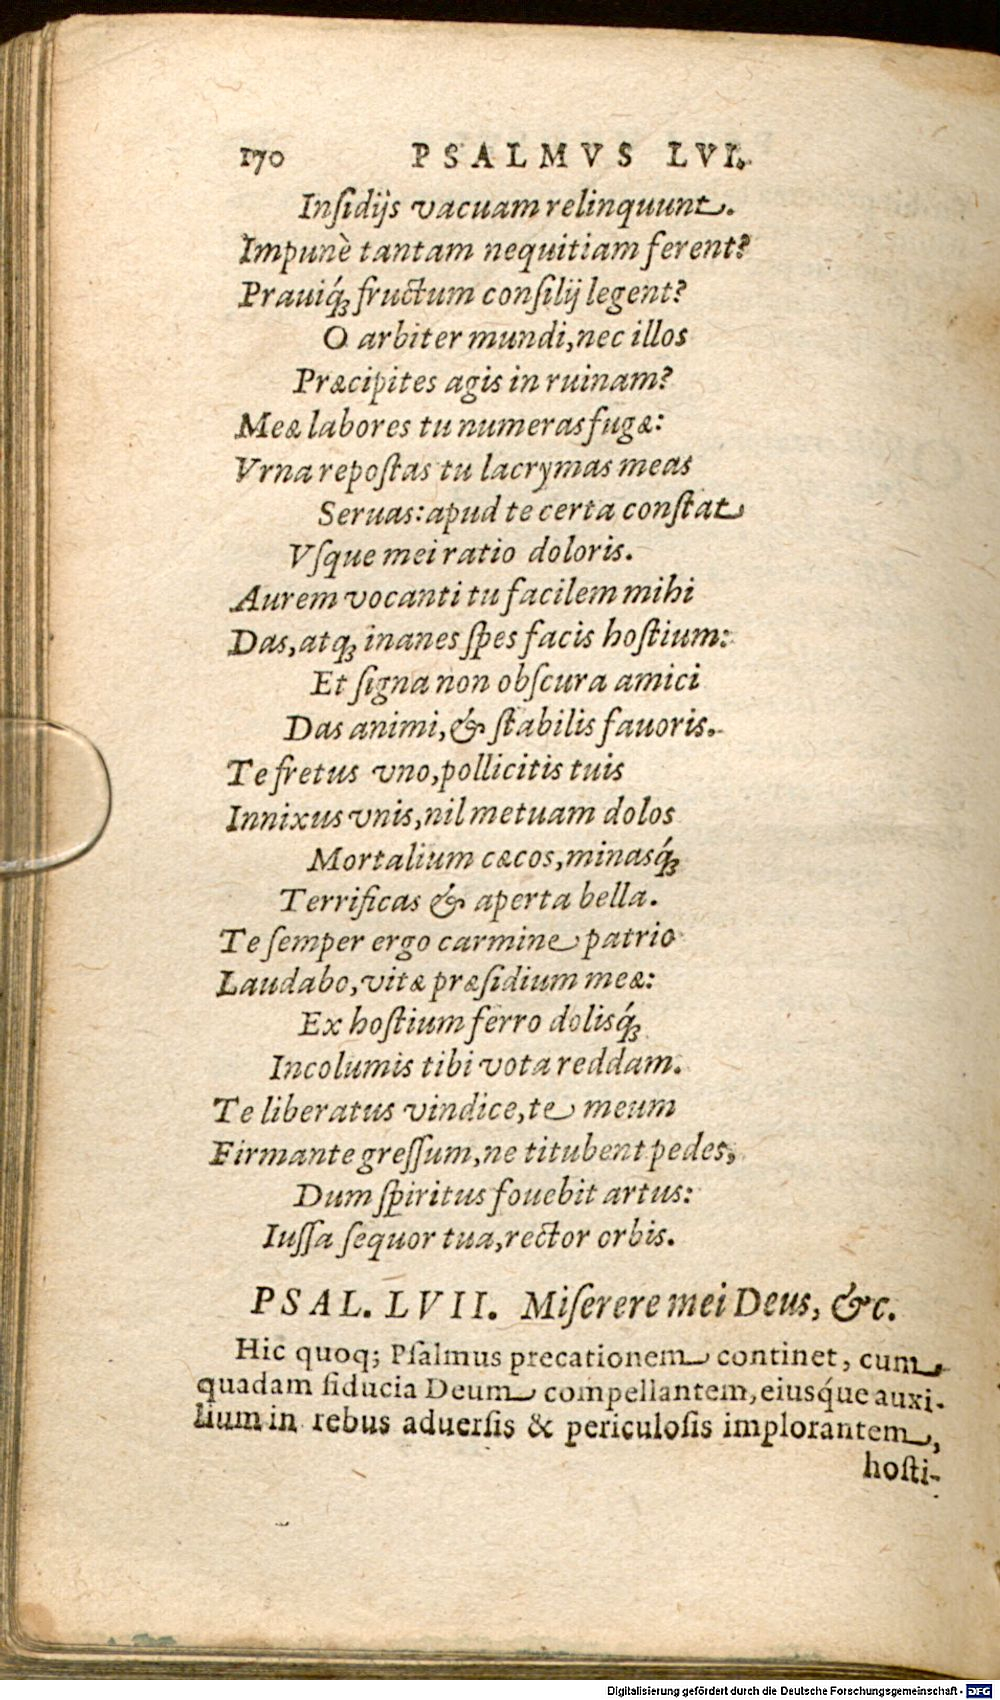 170 PSALMVS LVI.
Inſidijs vacuam relinquunt.
Impunè tantam nequitiam ferent?
Prauiq́ꝫ fructum conſilij legent?
O arbiter mundi, nec illos
Præcipites agis in ruinam?
Meæ labores tu numeras fugæ:
Vrna repoſtas tu lacrymas meas
Seruas: apud te certa conſtat
Vſque mei ratio doloris.
Aurem vocanti tu facilem mihi
Das, atqꝫ inanes ſpes facis hoſtium:
Et ſigna non obſcura amici
Das animi, & ſtabilis fauoris.
Te fretus vno, pollicitis tuis
Innixus vnis, nil metuam dolos
Mortalium cæcos, minasq́ꝫ
Terrificas & aperta bella.
Te ſemper ergo carmine patrio
Laudabo, vitæ præſidium meæ:
Ex hoſtium ferro dolisq́ꝫ
Incolumis tibi vota reddam.
Te liberatus vindice, te meum
Firmante greſſum, ne titubent pedes,
Dum ſpiritus fouebit artus:
Iuſſa ſequor tua, rector orbis.
PSAL. LVII. Miſerere mei Deus, &c.
Hic quoq; Pſalmus precationem continet, cum
quadam fiducia Deum compellantem, eiusq́ue auxi-
lium in rebus aduerſis & periculoſis implorantem,
hoſti-
Digitalisierung gefördert durch die Deutsche Forschungsgemeinschaft - DFG